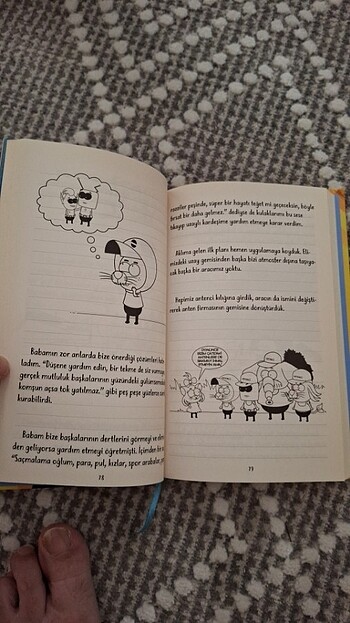 Babamın zor anlarda bize önerdiği çözümleri hatır
ladım. "Düşene yardım edin, bir tekme de siz vurmayın
gerçek mutluluk başkalarının yüzündeki gülümsemedir
komşun açsa tok yatılmaz." gibi peş peşe yüzlerce
kurabilirdi.
Babam bize başkalarının dertlerini görmeyi ve
den geliyorsa yardım etmeyi öğretmişti. İçimden bir
"Saçmalama oğlum, para, pul, kızlar, spor arabalar,
78
peşinde, süper bir hayatı tepet mi geçeceksin, böyle
fırsat bir daha gelmez." dediyse de kulaklarımı bu sese
tıkayıp uzaylı kardeşime yardım etmeye karar verdim.
Aklıma gelen ilk planı hemen uygulamaya koyduk. Eli-
mizdeki uzay gemisinden başka bizi atmosfer dışına taşıya-
cak başka bir aracımız yoktu.
Hepimiz antenci kılığına girdik, aracın da ismini değişti-
rerek anten firmasının gemisine dönüştürdük.
79